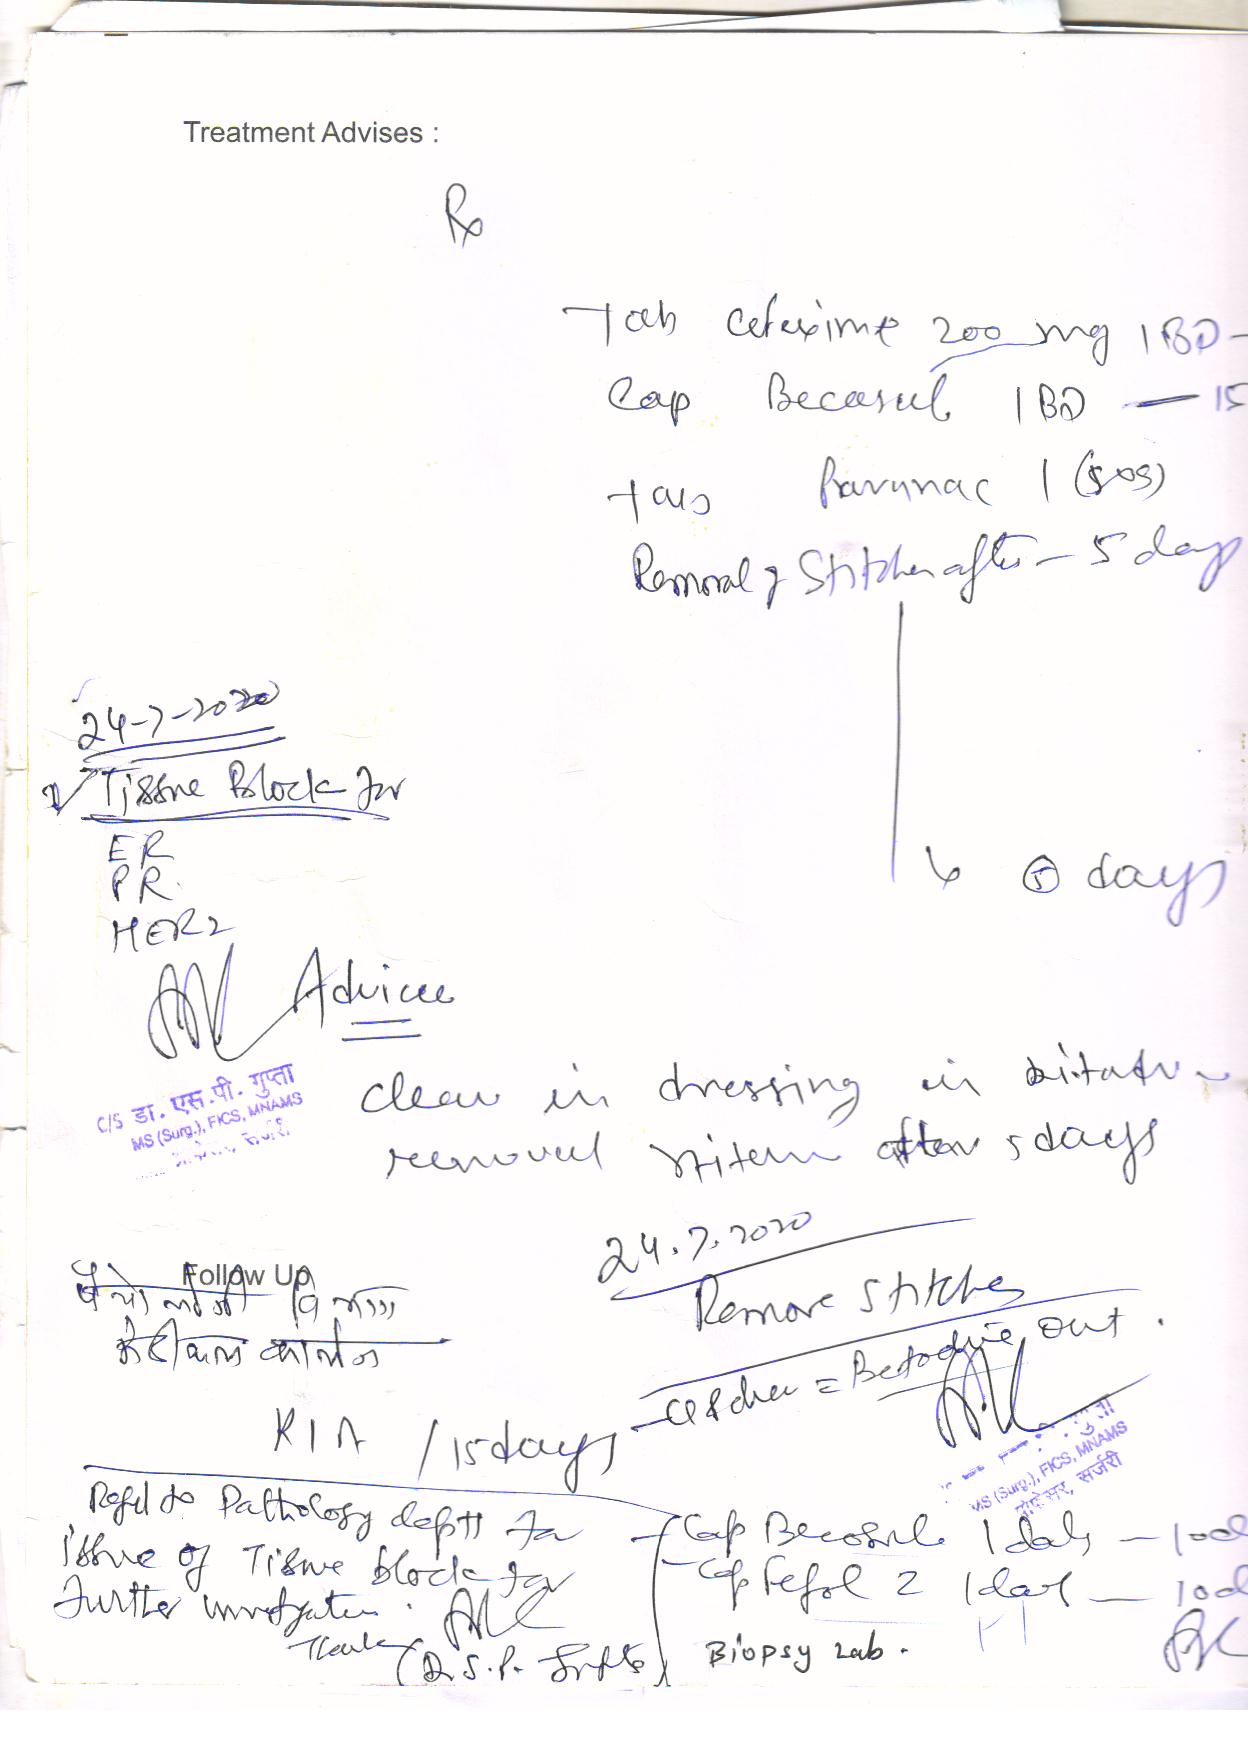 Treatment Advises :
Rx
Tab Cefexime 200 mg 1 BD -
Cap Becosul 1 BD — 15
Tab 1 (SOS)
Removal of Stitches after - 5 day
24-7-2020
Tissue Block for
ER
PR
HER2
↳ 5 days
Advice
C/S डा. एस.पी. गुप्ता
MS (Surg.), FICS, MNAMS
clean in dressing in
removel after 5 days
24.7.2020
Remove Stitches
= Betadine out.
Follow Up
/ 15 days
MS (Surg.), FICS, MNAMS
प्रोफेसर, सर्जरी
Refd to Pathology deptt for
issue of Tissue block for
Further investigation.
Thanks
(Dr. S.P. Gupta)
Cap Becosule 1 daily — 10d
Cap Fefol Z 1 daily — 10d
Biopsy Lab.